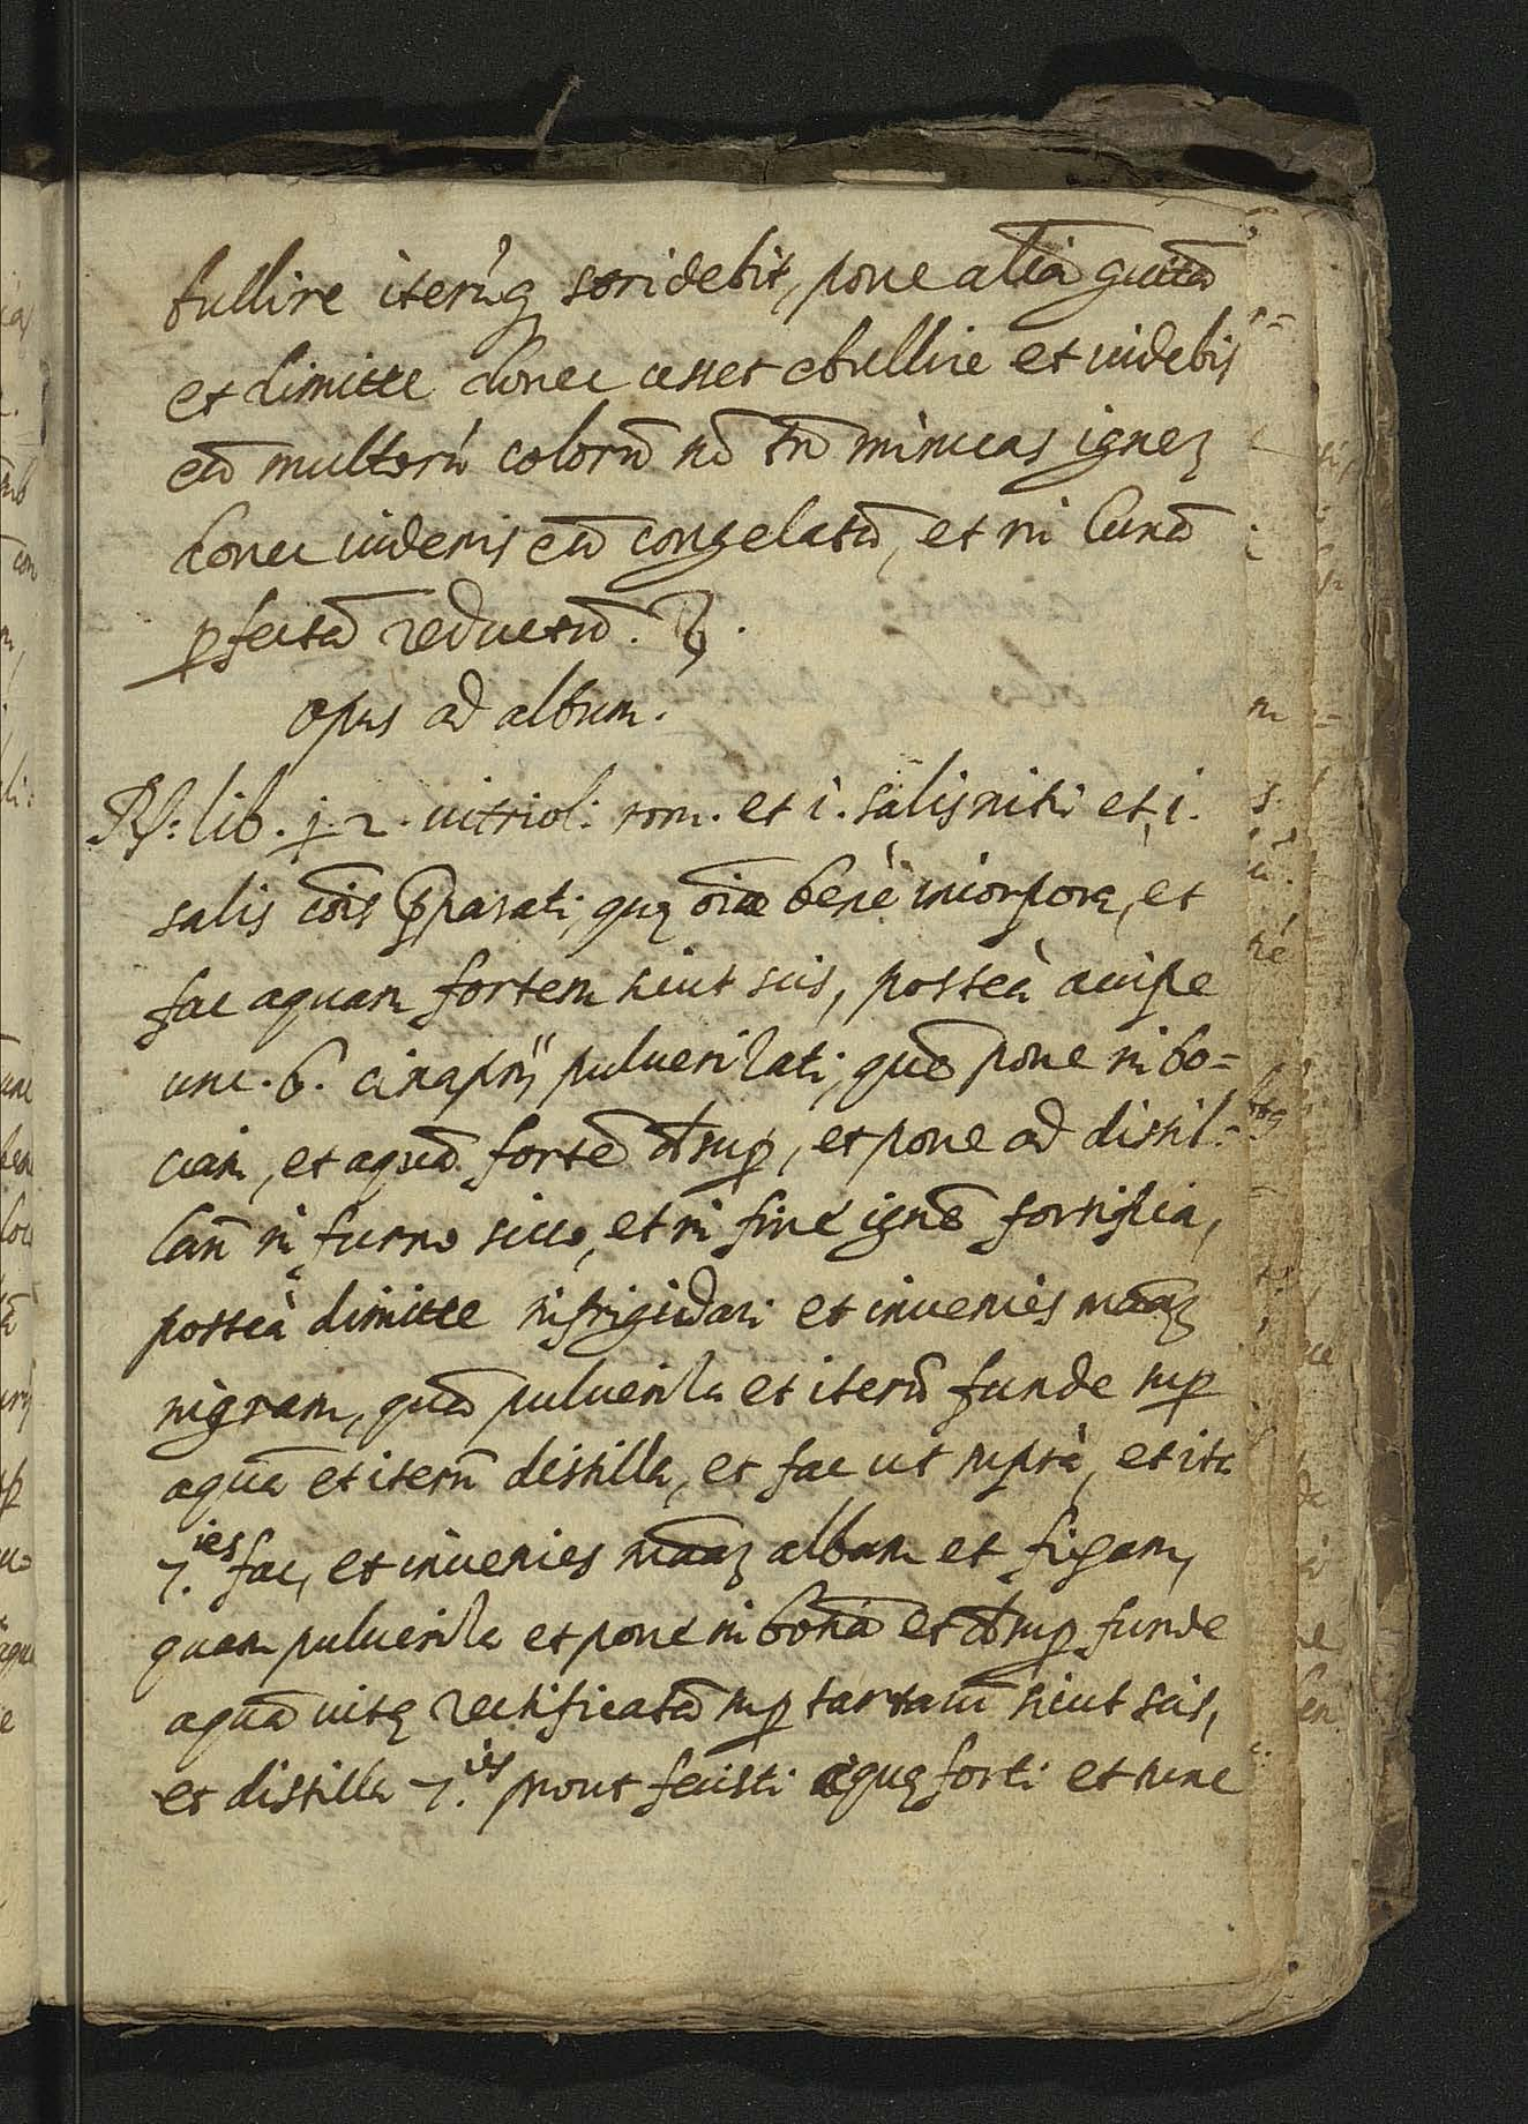 bullire iterũq stridebit, pone aliã guttã
et dimitte donec cesset ebullire et uidebis
eũ multorũ colorũ nõ tñ minuas ignez
donec uideris eũ congelatũ, et in lunã
pfectã reductũ.
opus ad album.
Rp: lib. j. 2. uitriol: rom. et i. salisnitri et i.
salis cõis pparati, quę oĩa benè incorpora, et
fac aquam fortem sicut scis, posteà accipe
unc. 6. cinaprij puluerizati, quẽ pone in bo=
ciam, et aquã fortẽ dsup, et pone ad distil=
lañ in furno sicco, et in fine ignẽ fortifica,
posteà dimitte infrigidari et inuenies mãaz
nigram, quã pulueriza et iterũ funde sup
aquã et iterũ distilla, et fac ut suprà, et ita
7.ies fac, et inuenies mãaz albam et fixam,
quam pulueriza et pone in bociã et dsup funde
aquã uitę rectificatã sup tartarũ sicut scis,
et distilla 7.ies prout fecisti aquę forti et tunc